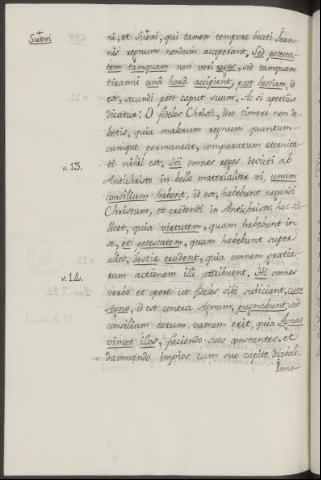 Suevi
ni, et Suevi, qui tamen tempore beati Joan-
nis regnum nondum acceperant, sed potesta-
tem tamquam non veri reges, sed tamquam
tiranni una hora accipient, post bestiam, id
est, secundi post caput suum. Ac si apertius
dicatur: O fideles Christi, ideo timere non de-
betis, quia malorum regnum quantum-
cumque permaneat, comparatum aeternita-
ti nihil est. Hi omnes reges devicti ab
v. 13.
Antichristo in bello materialiter vi, unum
consilium habent, id est, habebunt negandi
Christum, et credendi in Antichristo: hoc sci-
licet, quia virtutem, quam habebunt in
se, et potestatem, quam habebunt super
alios, bestiae tradent, quia omnem pratia-
rum actionem illi attribuent. Hi omnes
v. 14.
verbo et opere ut fideles sibi subiciant, cum
Agno, id est contra Agnum, pugnabunt, sed
consilium eorum vanum erit, quia Agnus
vincet illos, faciendo suos constantes, et
damnando impios cum suo capite diabolo.
Immo